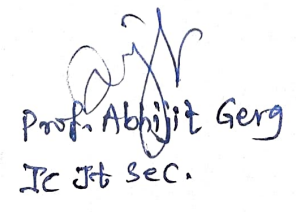 Prof. Abhijit Gerg
Ic It Sec.